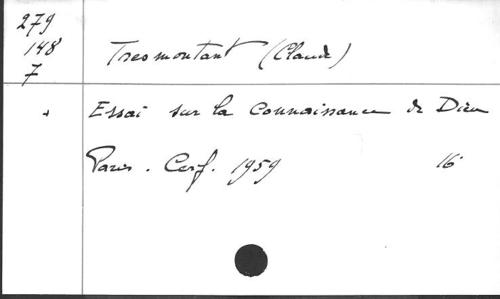 279
148
7
Tresmontant (Claude)
+ Essai sur la connaissance de Dieu
Paris. Cerf. 1959 16°